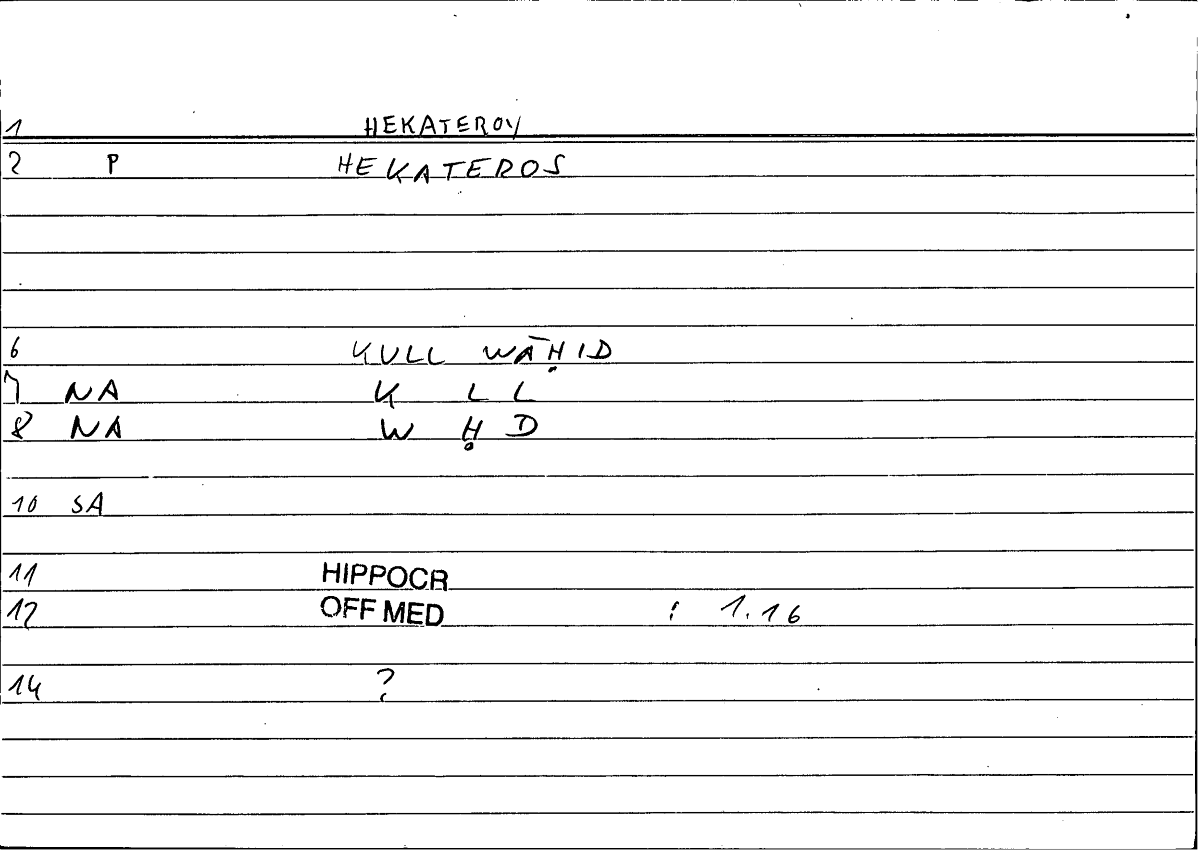 1 HEKATEROY
2 P HEKATEROS
6 KULL WĀḤID
7 NA K L L
8 NA W Ḥ D
10 SA
11 HIPPOCR
12 OFF MED : 1.16
14 ?